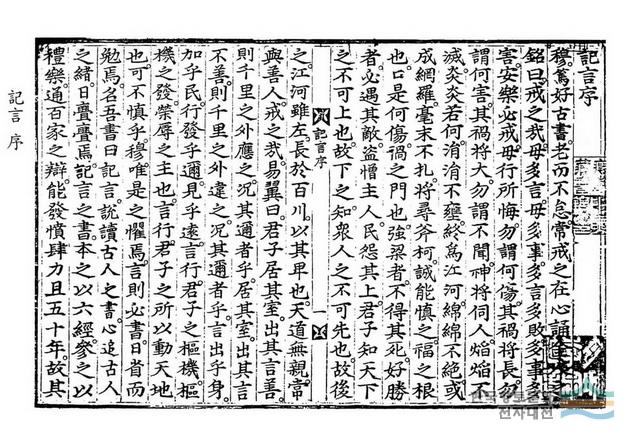 記言序
穆篤好古書老而不怠常戒之在心誦之
銘曰戒之哉毋多言毋多事多言多敗多事多
害安樂必戒毋行所悔勿謂何傷其禍將長勿
謂何害其禍將大勿謂不聞神將伺人焰焰不
滅炎炎若何涓涓不壅終爲江河綿綿不絶或
成網羅毫末不扎將尋斧柯誠能愼之福之根
也口是何傷禍之門也強梁者不得其死好勝
者必遇其敵盜憎主人民怨其上君子知天下
之不可上也故下之知衆人之不可先也故後
記言序
一
之江河雖左長於百川以其卑也天道無親常
與善人戒之哉易翼曰君子居其室出其言善
則千里之外應之況其邇者乎居其室出其言
不善則千里之外違之況其邇者乎言出乎身
加乎民行發乎邇見乎遠言行君子之樞機樞
機之發榮辱之主也言行君子之所以動天地
也可不愼乎穆唯是之懼焉言則必書日省而
勉焉名吾書曰記言說讀古人之書心追古人
之緖日亹亹焉記言之書本之以六經參之以
禮樂通百家之辯能發憤肆力且五十年故其
記言 序
전자대전